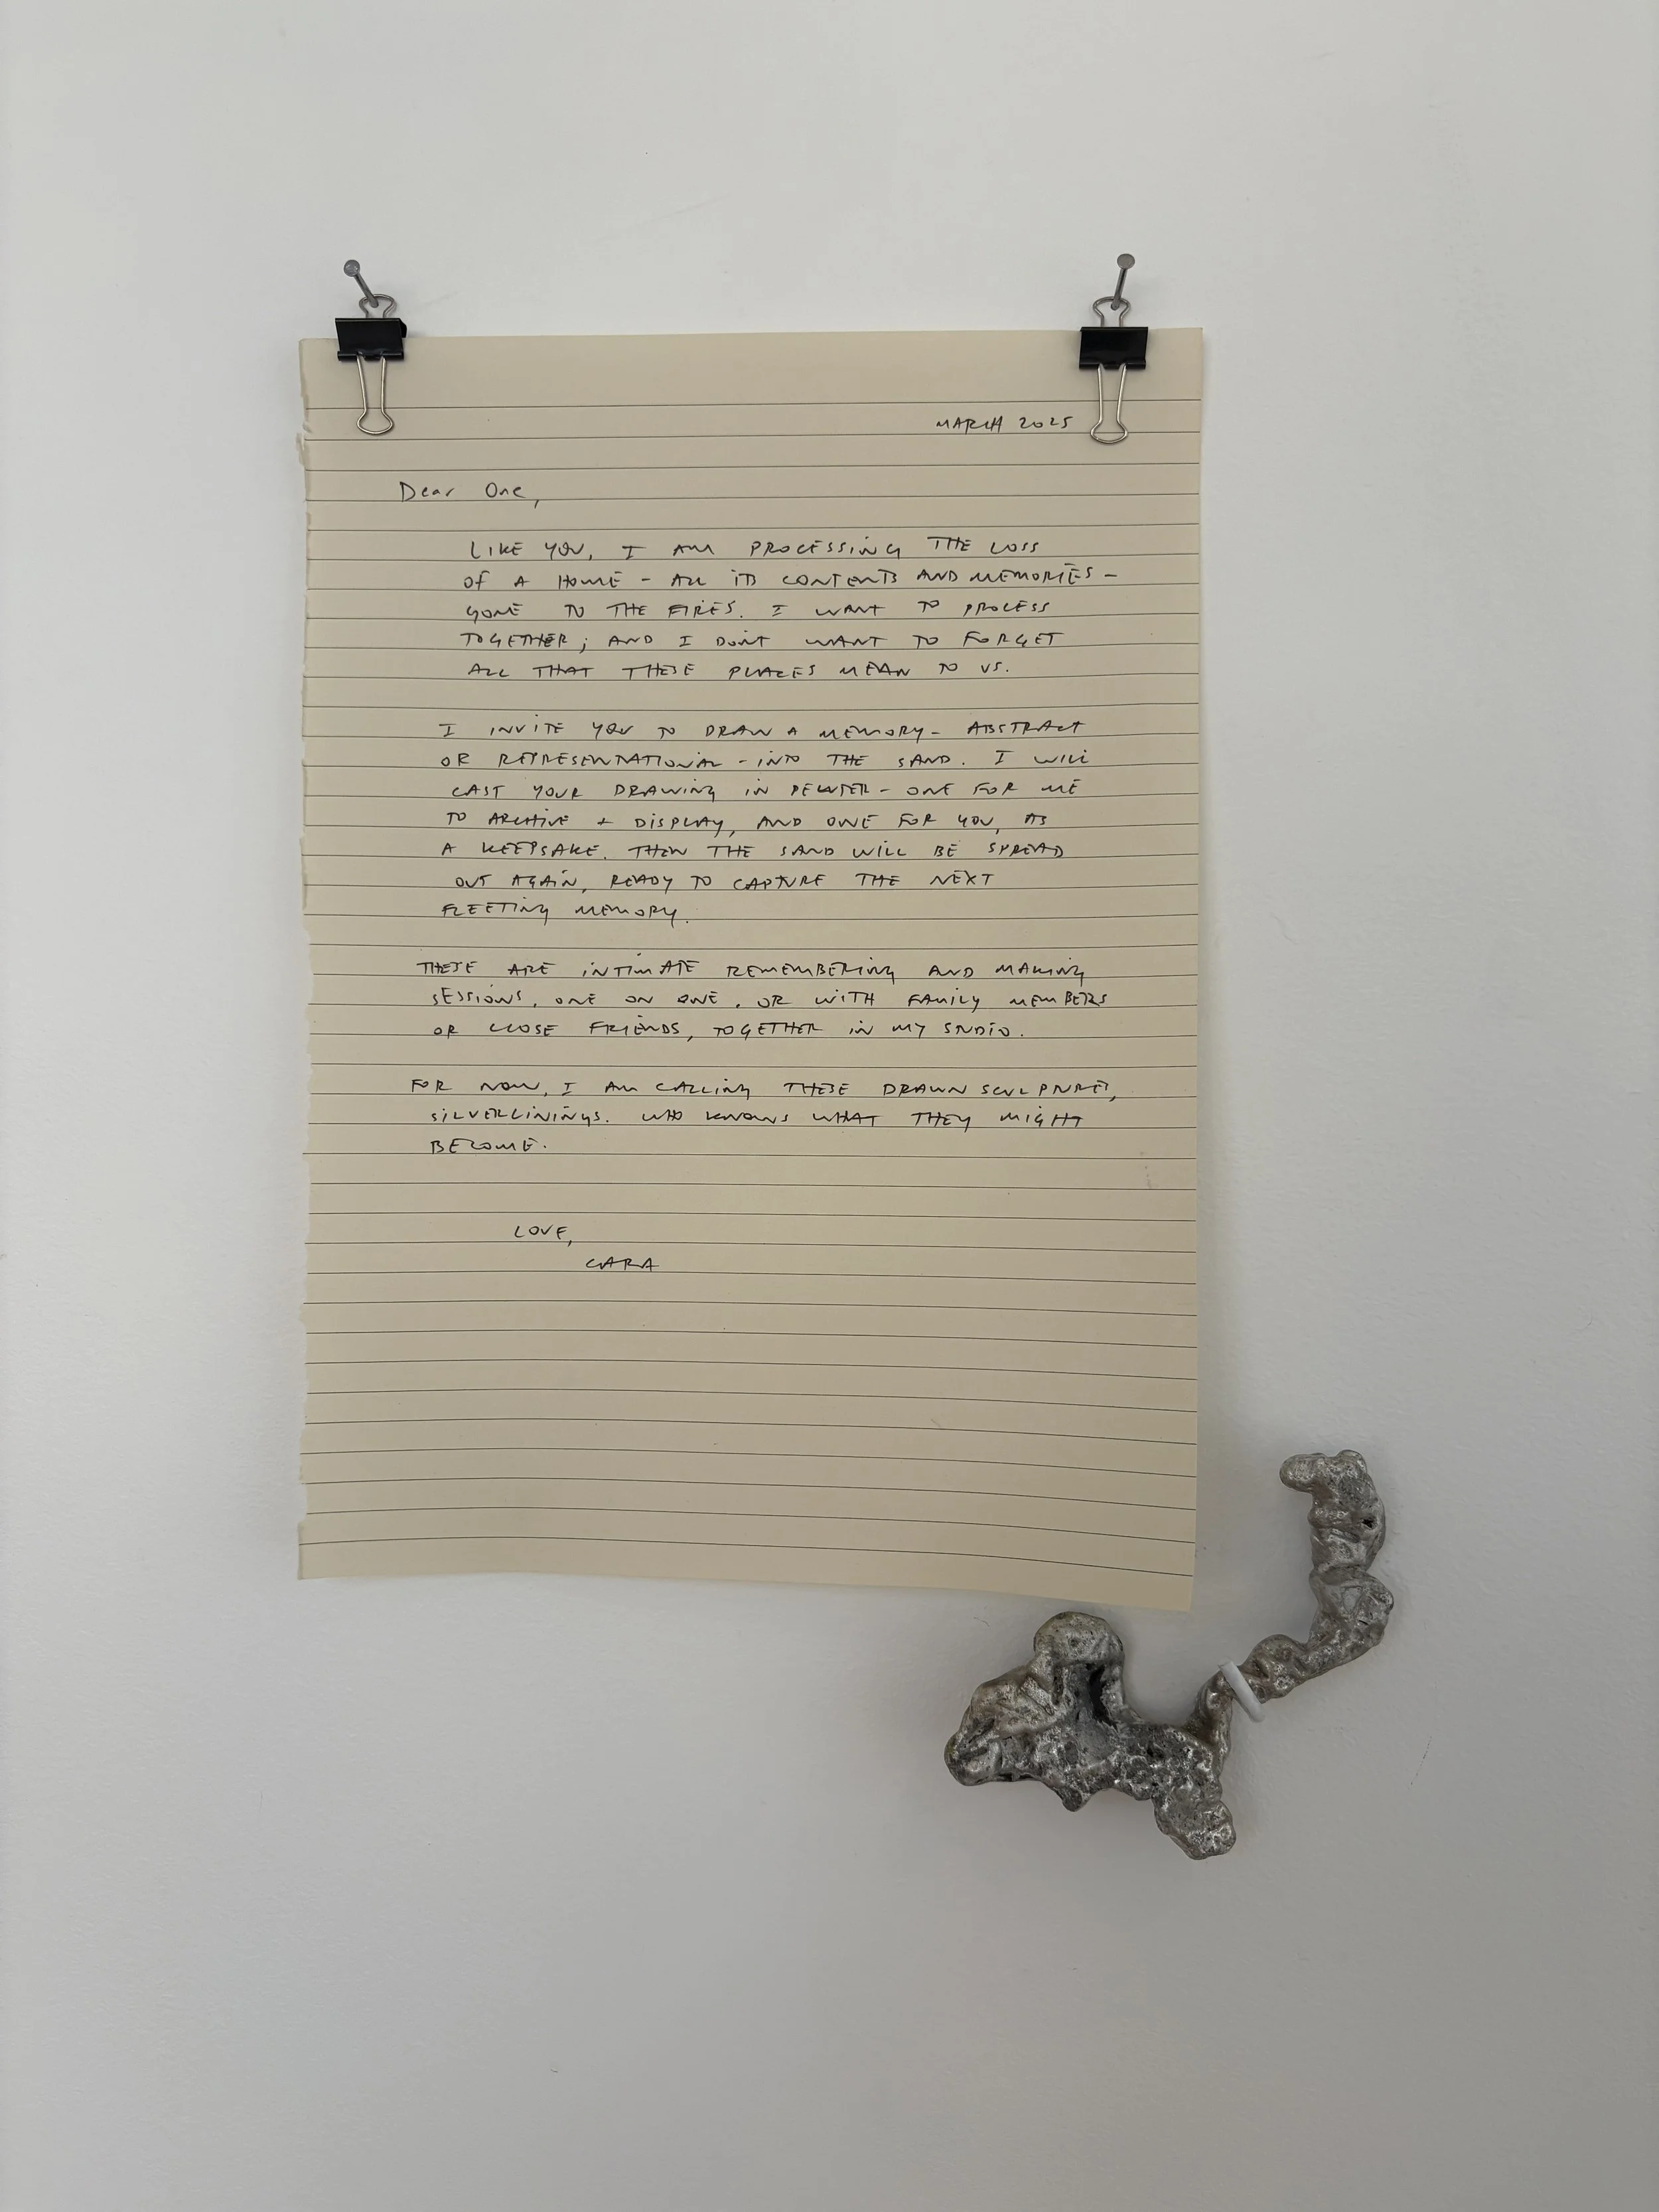 MARCH 2025
Dear One,
LIKE YOU, I AM PROCESSING THE LOSS
OF A HOME - ALL ITS CONTENTS AND MEMORIES -
GONE TO THE FIRES. I WANT TO PROCESS
TOGETHER; AND I DON'T WANT TO FORGET
ALL THAT THESE PLACES MEAN TO US.
I INVITE YOU TO DRAW A MEMORY - ABSTRACT
OR REPRESENTATIONAL - INTO THE SAND. I WILL
CAST YOUR DRAWING IN PEWTER - ONE FOR ME
TO ARCHIVE + DISPLAY, AND ONE FOR YOU, AS
A KEEPSAKE. THEN THE SAND WILL BE SPREAD
OUT AGAIN, READY TO CAPTURE THE NEXT
FLEETING MEMORY.
THESE ARE INTIMATE REMEMBERING AND MAKING
SESSIONS, ONE ON ONE, OR WITH FAMILY MEMBERS
OR CLOSE FRIENDS, TOGETHER IN MY STUDIO.
FOR NOW, I AM CALLING THESE DRAWN SCULPTURES,
SILVERLININGS. WHO KNOWS WHAT THEY MIGHT
BECOME.
LOVE,
CARA